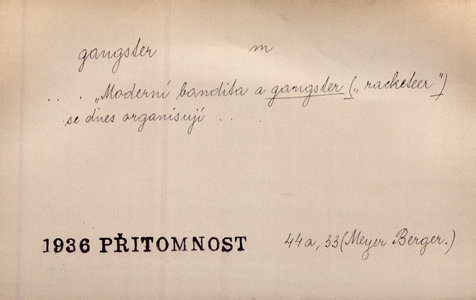 gangster m
. . . „Moderní bandita a gangster („racketeer")
se dnes organisují . .
1936 PŘITOMNOST 44a, 33 (Meyer Berger.)